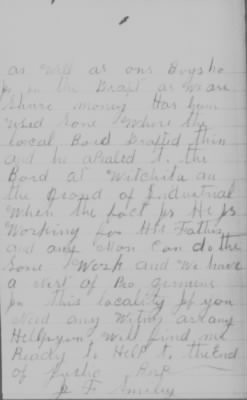 as well as our Boys ho
is in the Draft as we are
shure money Has bin
used Some Where the
local Bord Drafted thim
and he apealed it the
Bord at Witchita on
theGround of Industrial
When the fact is He is
Working for His Father
and any Man Can do the
Same Work and We have
a Nest of Pro Germens
in this locality if you
Need any Witnes or any
Help you Will find me
Ready to Help to the End
of